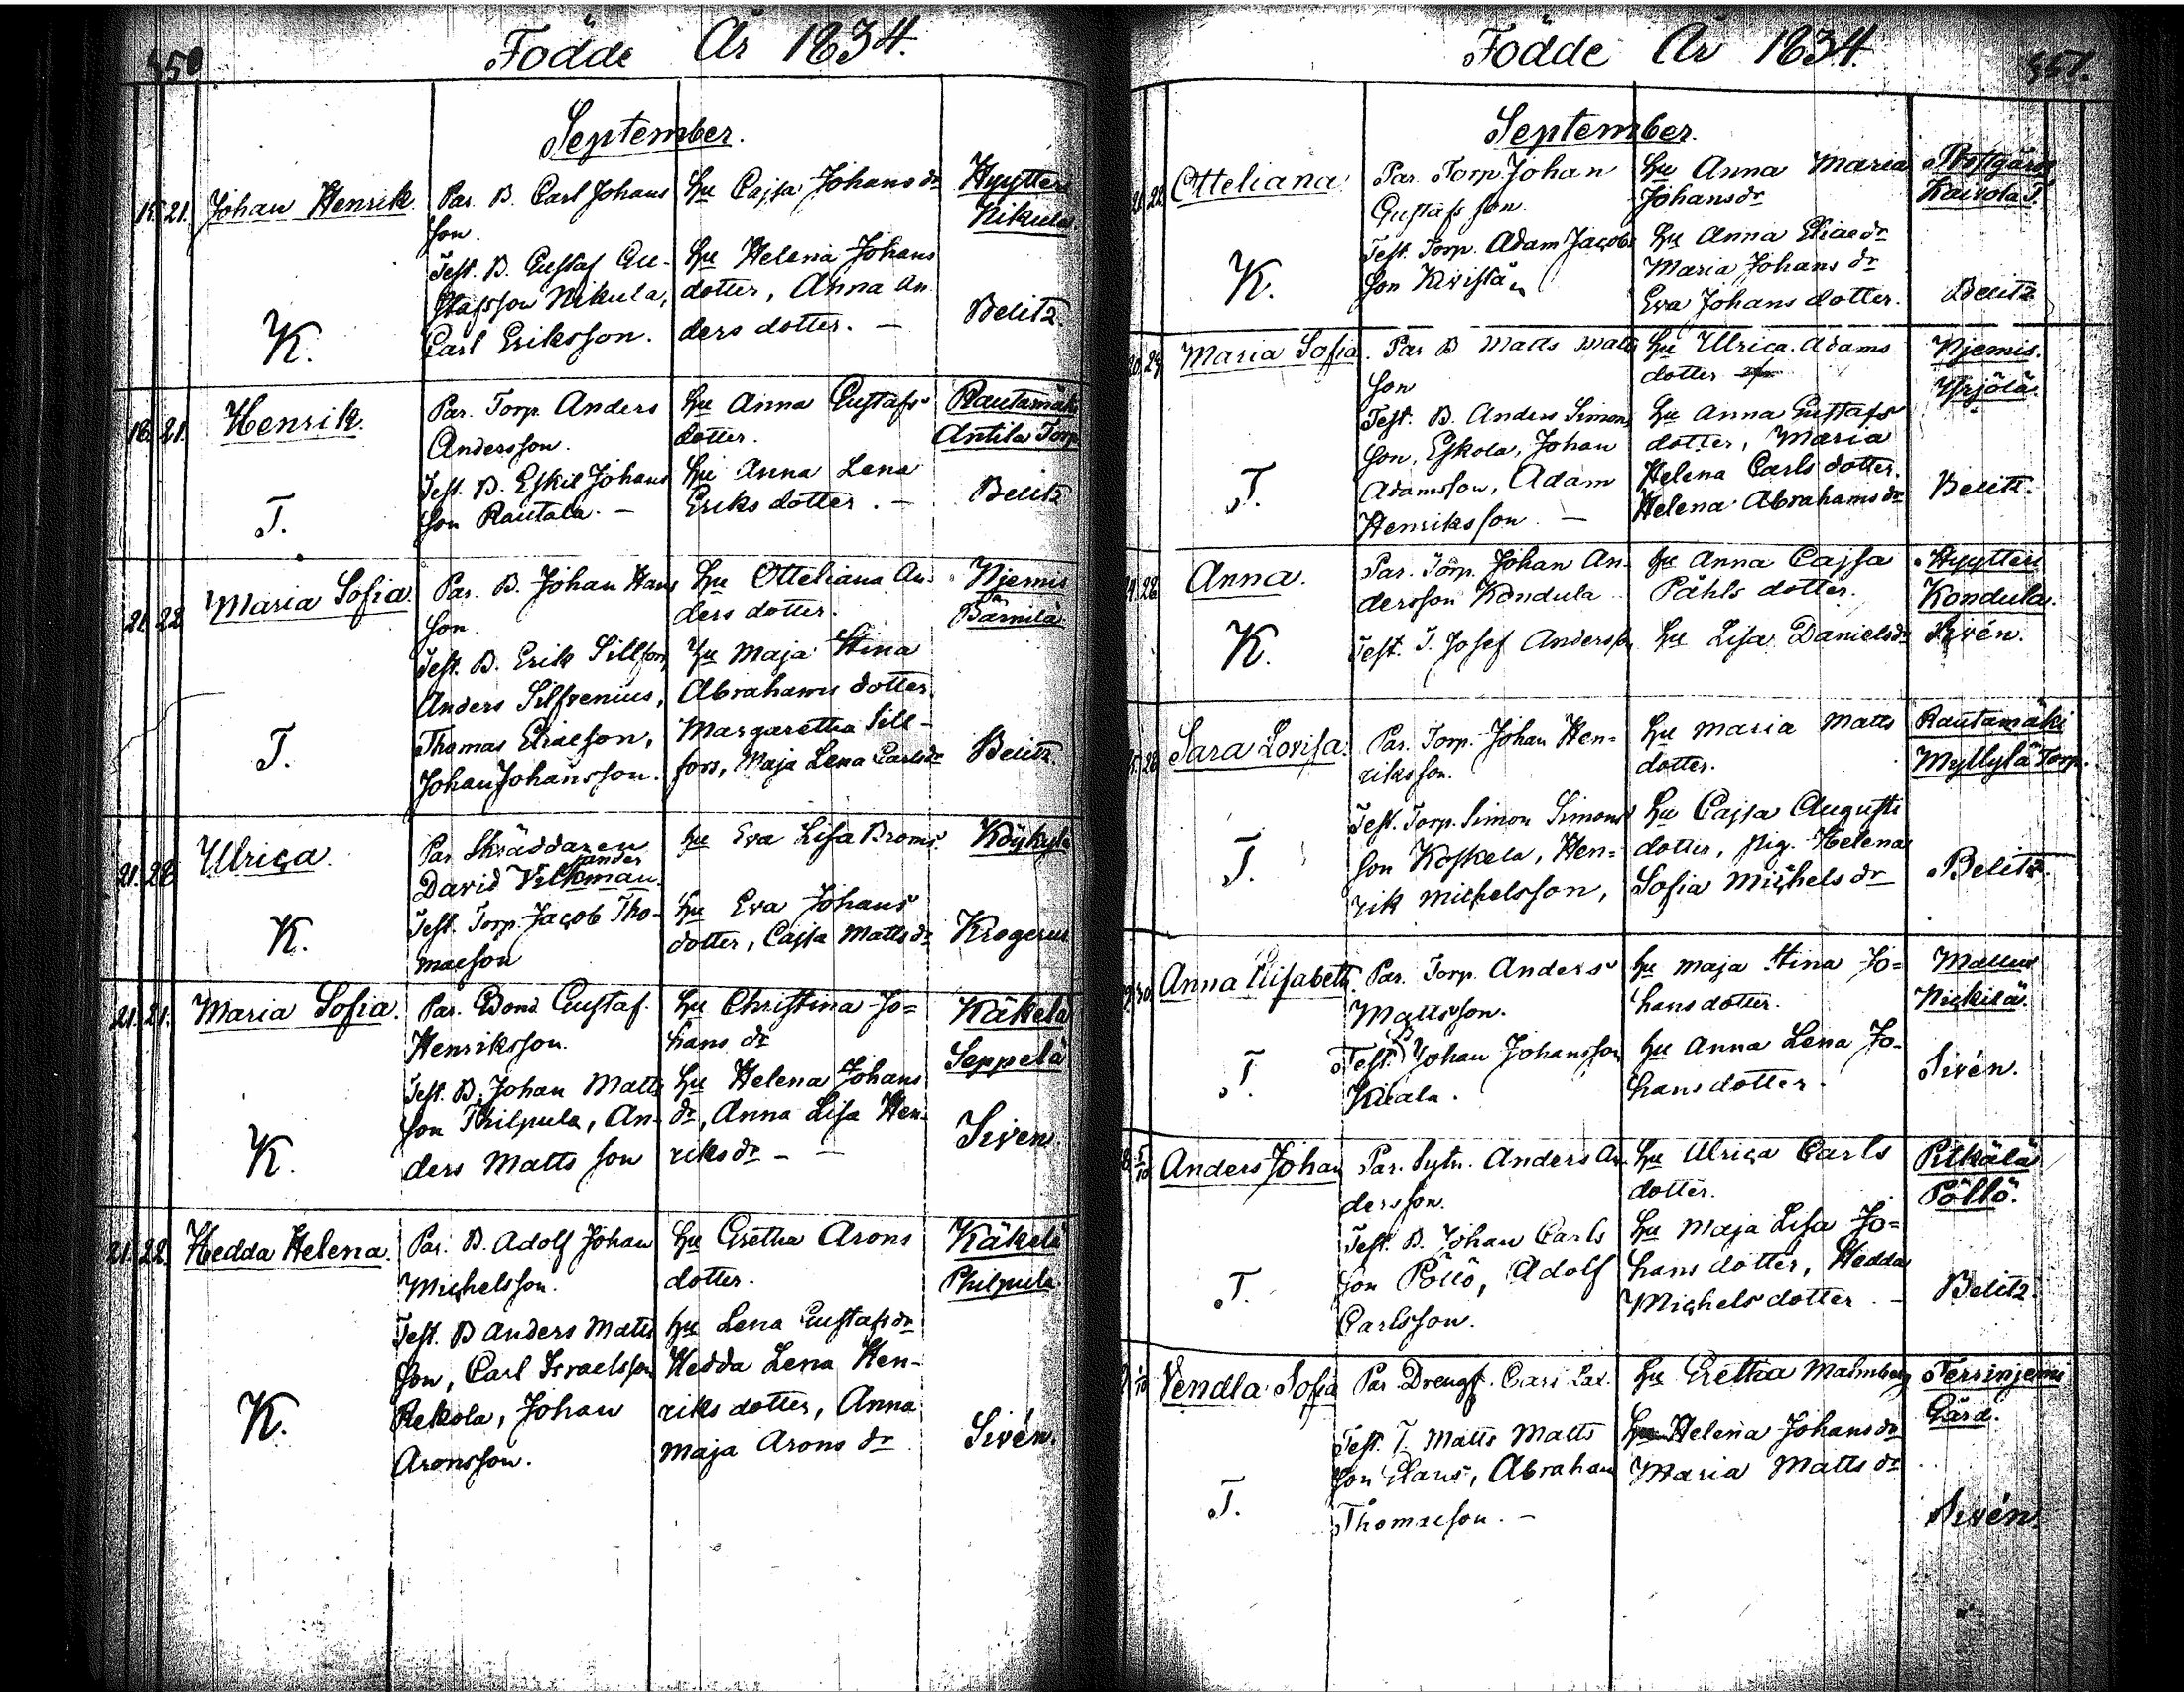 Födde År 1834.
September.
15. 21. Johan Henrik. Par. B. Carl Johans Hu Cajsa Johans dr Hyytteri
son. Nikula.
Test. B. Gustaf Gu- Hu Helena Johans
stafsson Nikula, dotter, Anna An
K. Carl Eriksson. ders dotter. — Belitz.
18. 21. Henrik. Par. Torp. Anders Hu Anna Gustafs Rautamäki
Andersson. dotter. Antila Torp
Test. B. Eskil Johans Hu Anna Lena
T. son Rautala. — Eriks dotter. — Belitz
21. 22 Maria Sofia. Par. B. Johan Hans Hu Otteliana An- Njemis
son. ders dotter. Bärnilä.
Test. B. Erik Sillfors, Hu Maja Stina
Anders Silfvenius, Abrahams dotter.
Thomas Eliaeson, Margaretha Sill-
T. Johan Johansson. fors, Maja Lena Carlsdr Belitz.
21. 28 Ulrica. Par. Skräddaren Hu Eva Lisa Broms. Köykylä
David Vilkman.
ander
Test. Torp. Jacob Tho- Hu Eva Johans
K. maeson dotter, Cajsa Matts dr Krogerus
21. 21. Maria Sofia. Par. Bond Gustaf Hu Christina Jo= Käkelä
Henriksson. hans dr Seppelä
Test. B. Johan Matts Hu Helena Johans
son Philpula, An- dr, Anna Lisa Hen-
K. ders Matts son riks dr — — Siven
21. 22. Hedda Helena. Par. B. Adolf Johan Hu Gretha Arons Käkelä
Michelsson. dotter. Philpula
Test. B Anders Matts Hu Lena Gustafs dr
son, Carl Israelsson Hedda Lena Hen-
K. Rekola, Johan riks dotter, Anna
Aronsson. Maja Arons dr Sivén.
Födde År 1834. 351.
September.
22. Otteliana. Par. Torp. Johan Hu Anna Maria
Gustafs son. Johansdr Kaivola T.
Test. Torp. Adam Jacobs Hu Anna Eliaedr
K. son Kivistä Maria Johans dr
Eva Johans dotter. Belitz
Maria Sofia. Par B. Matts Matts Hu Ulrica Adams Njemis.
son dotter Yrjölä.
Test. B. Anders Simons Hu Anna Gustafs
son, Eskola, Johan dotter, Maria
T. Adamsson, Adam Helena Carls dotter.
Henriksson. — Helena Abrahams dr Belitz.
28 Anna. Par. Torp. Johan An- Hu Anna Cajsa Hyytteri
dersson Kondula Påhls dotter. Kondula.
K. Test. T. Josef Andersson Hu Lisa Danielsdr Sivén.
28 Sara Lovisa. Par. Torp. Johan Hen= Hu Maria Matts Rautamäki
riksson. dotter. Myllylä Torp.
Test. Torp. Simon Simons Hu Cajsa Augusti
T. son Koskela, Hen= dotter, Pig. Helena
rik Michelsson, Sofia Michels dr Belitz.
30 Anna Elisabeth. Par. Torp. Anders Hu Maja Stina Jo= Mallus
Mattsson. hans dotter. Nickilä.
Test. B Johan Johansson Hu Anna Lena Jo-
T. hans dotter. Sivén.
5/10 Anders Johan Par. Sytn. Anders An- Hu Ulrica Carls Pitkälä
dersson. dotter. Pöllö.
Test. B. Johan Carls Hu Maja Lisa Jo=
T. son Pöllö, Adolf hans dotter, Hedda
Carlsson. Michels dotter — Belitz.
Vendla Sofia Par. Drengf. Carl Hu Gretha Malmberg Terrinjemi
Gård.
Test. T. Matts Matts Helena Johansdr
son Klaus, Abraham Maria Matts dr
T. Thomaeson. — Sivén.